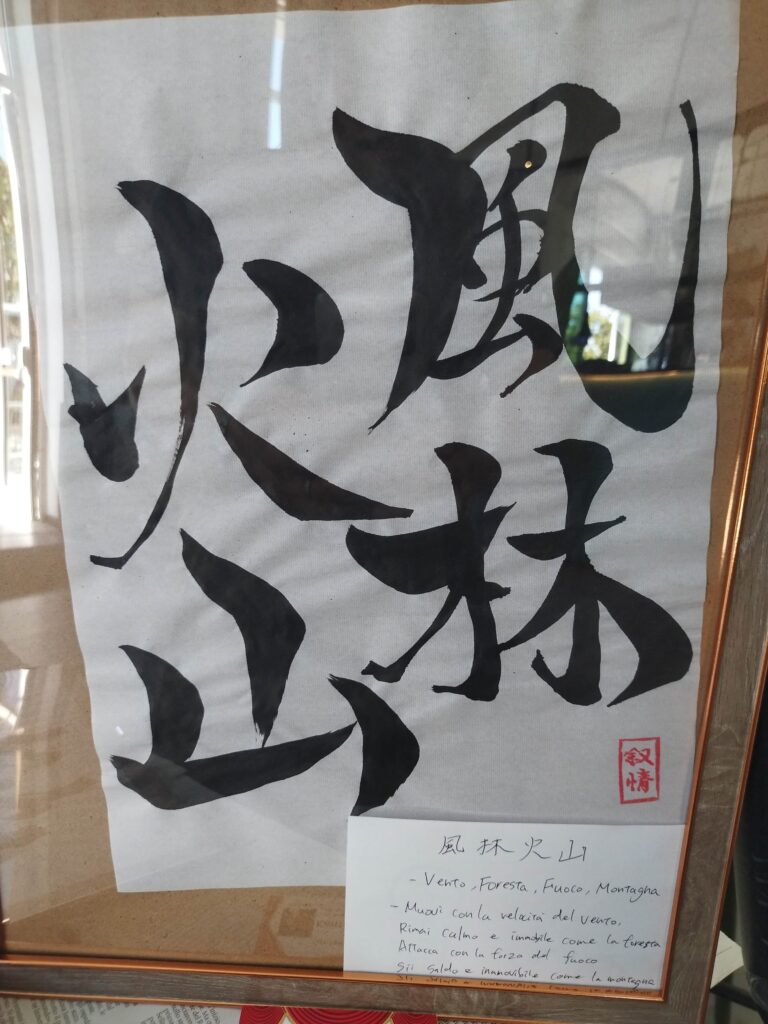 風林
火山
叙情
風林火山
- Vento, Foresta, Fuoco, Montagna
- Muovi con la velocità del vento,
Rimai calmo e immobile come la foresta
Attacca con la forza del fuoco
Sii saldo e inamovibile come la montagna